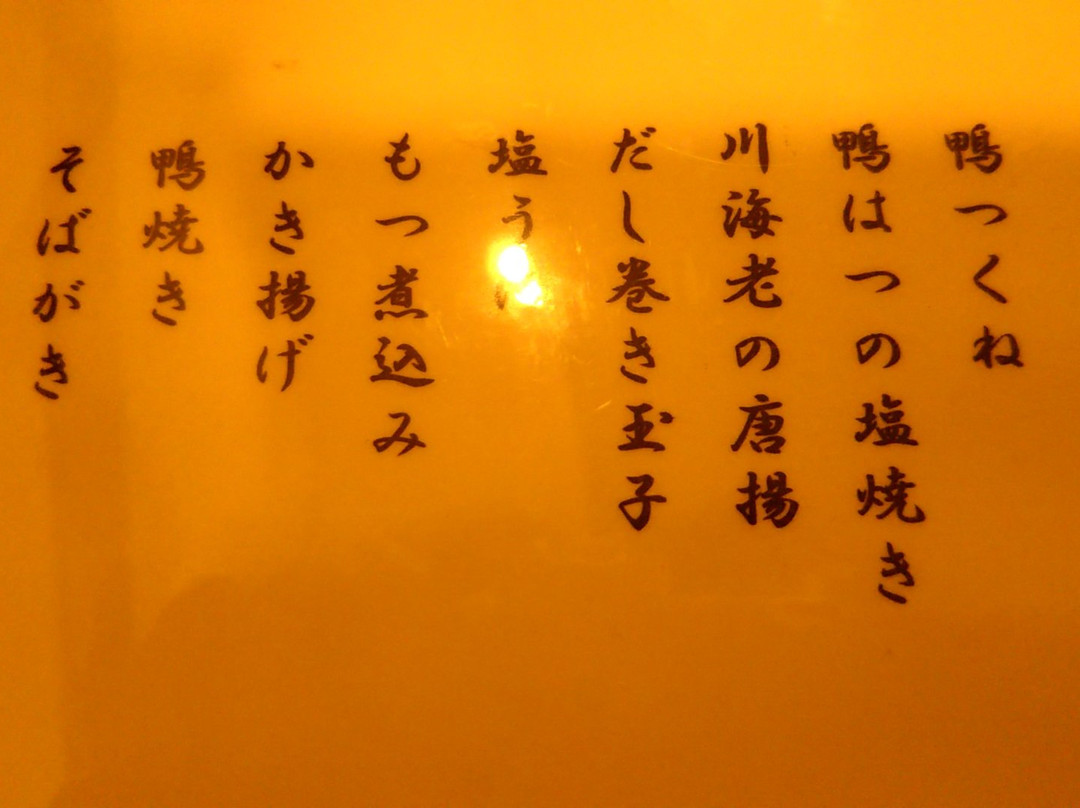 鴨つくね
鴨はつの塩焼き
川海老の唐揚
だし巻き玉子
塩う
もつ煮込み
かき揚げ
鴨焼き
そばがき